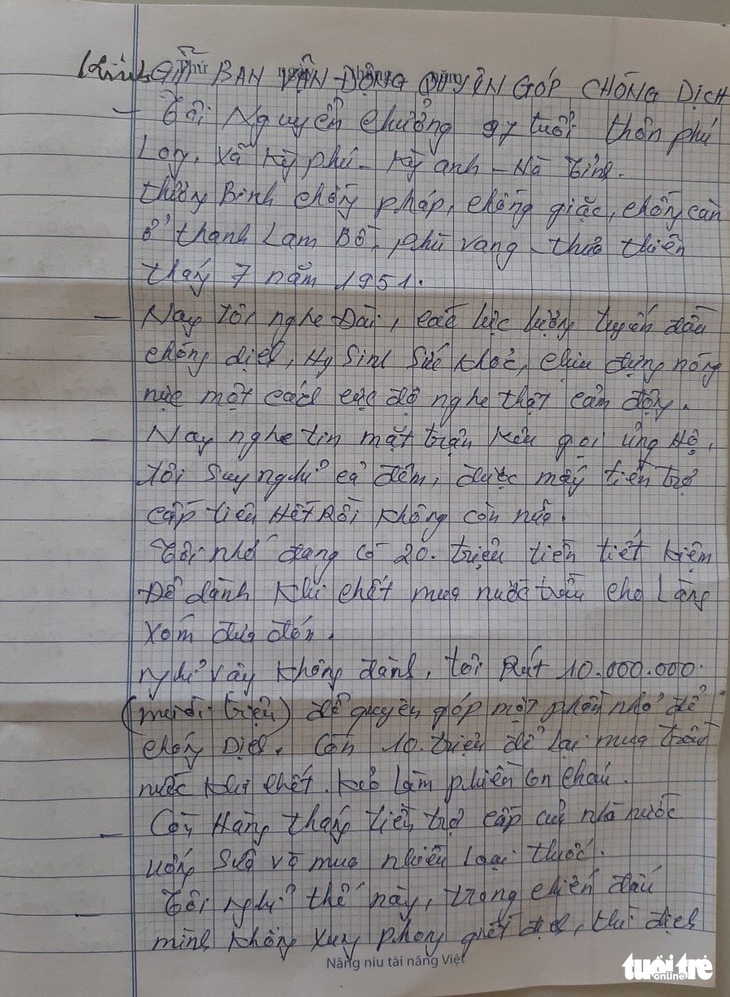 Kính GỬI BAN VẬN ĐỘNG QUYÊN GÓP CHỐNG DỊCH
- Tôi Nguyễn Chưởng 97 tuổi thôn phú
Lon, xã kỳ phú - kỳ anh - Hà Tỉnh.
thương Binh chống pháp, chống giặc, chống càn
ở thanh Lam Bồ, phú vang thừa thiên
tháng 7 năm 1951.
- Nay tôi nghe Đài, các lực lượng tuyến đầu
chống dịch, Hy Sinh Sức khỏe, chịu đựng nóng
nực một cách cực độ nghe thật cảm động.
- Nay nghe tin mặt trận kêu gọi ủng Hộ,
tôi Suy nghỉ cả đêm, được mấy tiền trợ
cấp tiêu HếT RồI không còn nữa.
Tôi nhớ đang có 20. triệu tiền tiết kiệm
Để dành khi chết mua nước trầu cho Làng
xóm đưa đón.
nghỉ vậy không đành, tôi Rút 10.000.000.
(mười triệu) để quyên góp một phần nhỏ để
chống Dịch. Còn 10. triệu để lại mua trầu
nước khi chết. kẻo làm phiền con cháu.
- Còn Hàng tháng tiền trợ cấp của nhà nước
uống Sữa và mua nhiều loại thuốc.
- Tôi nghỉ thế này, trong chiến đấu
mình không xung phong giết địch, thì địch
Nâng niu tài năng Việt
tuổi trẻ
online